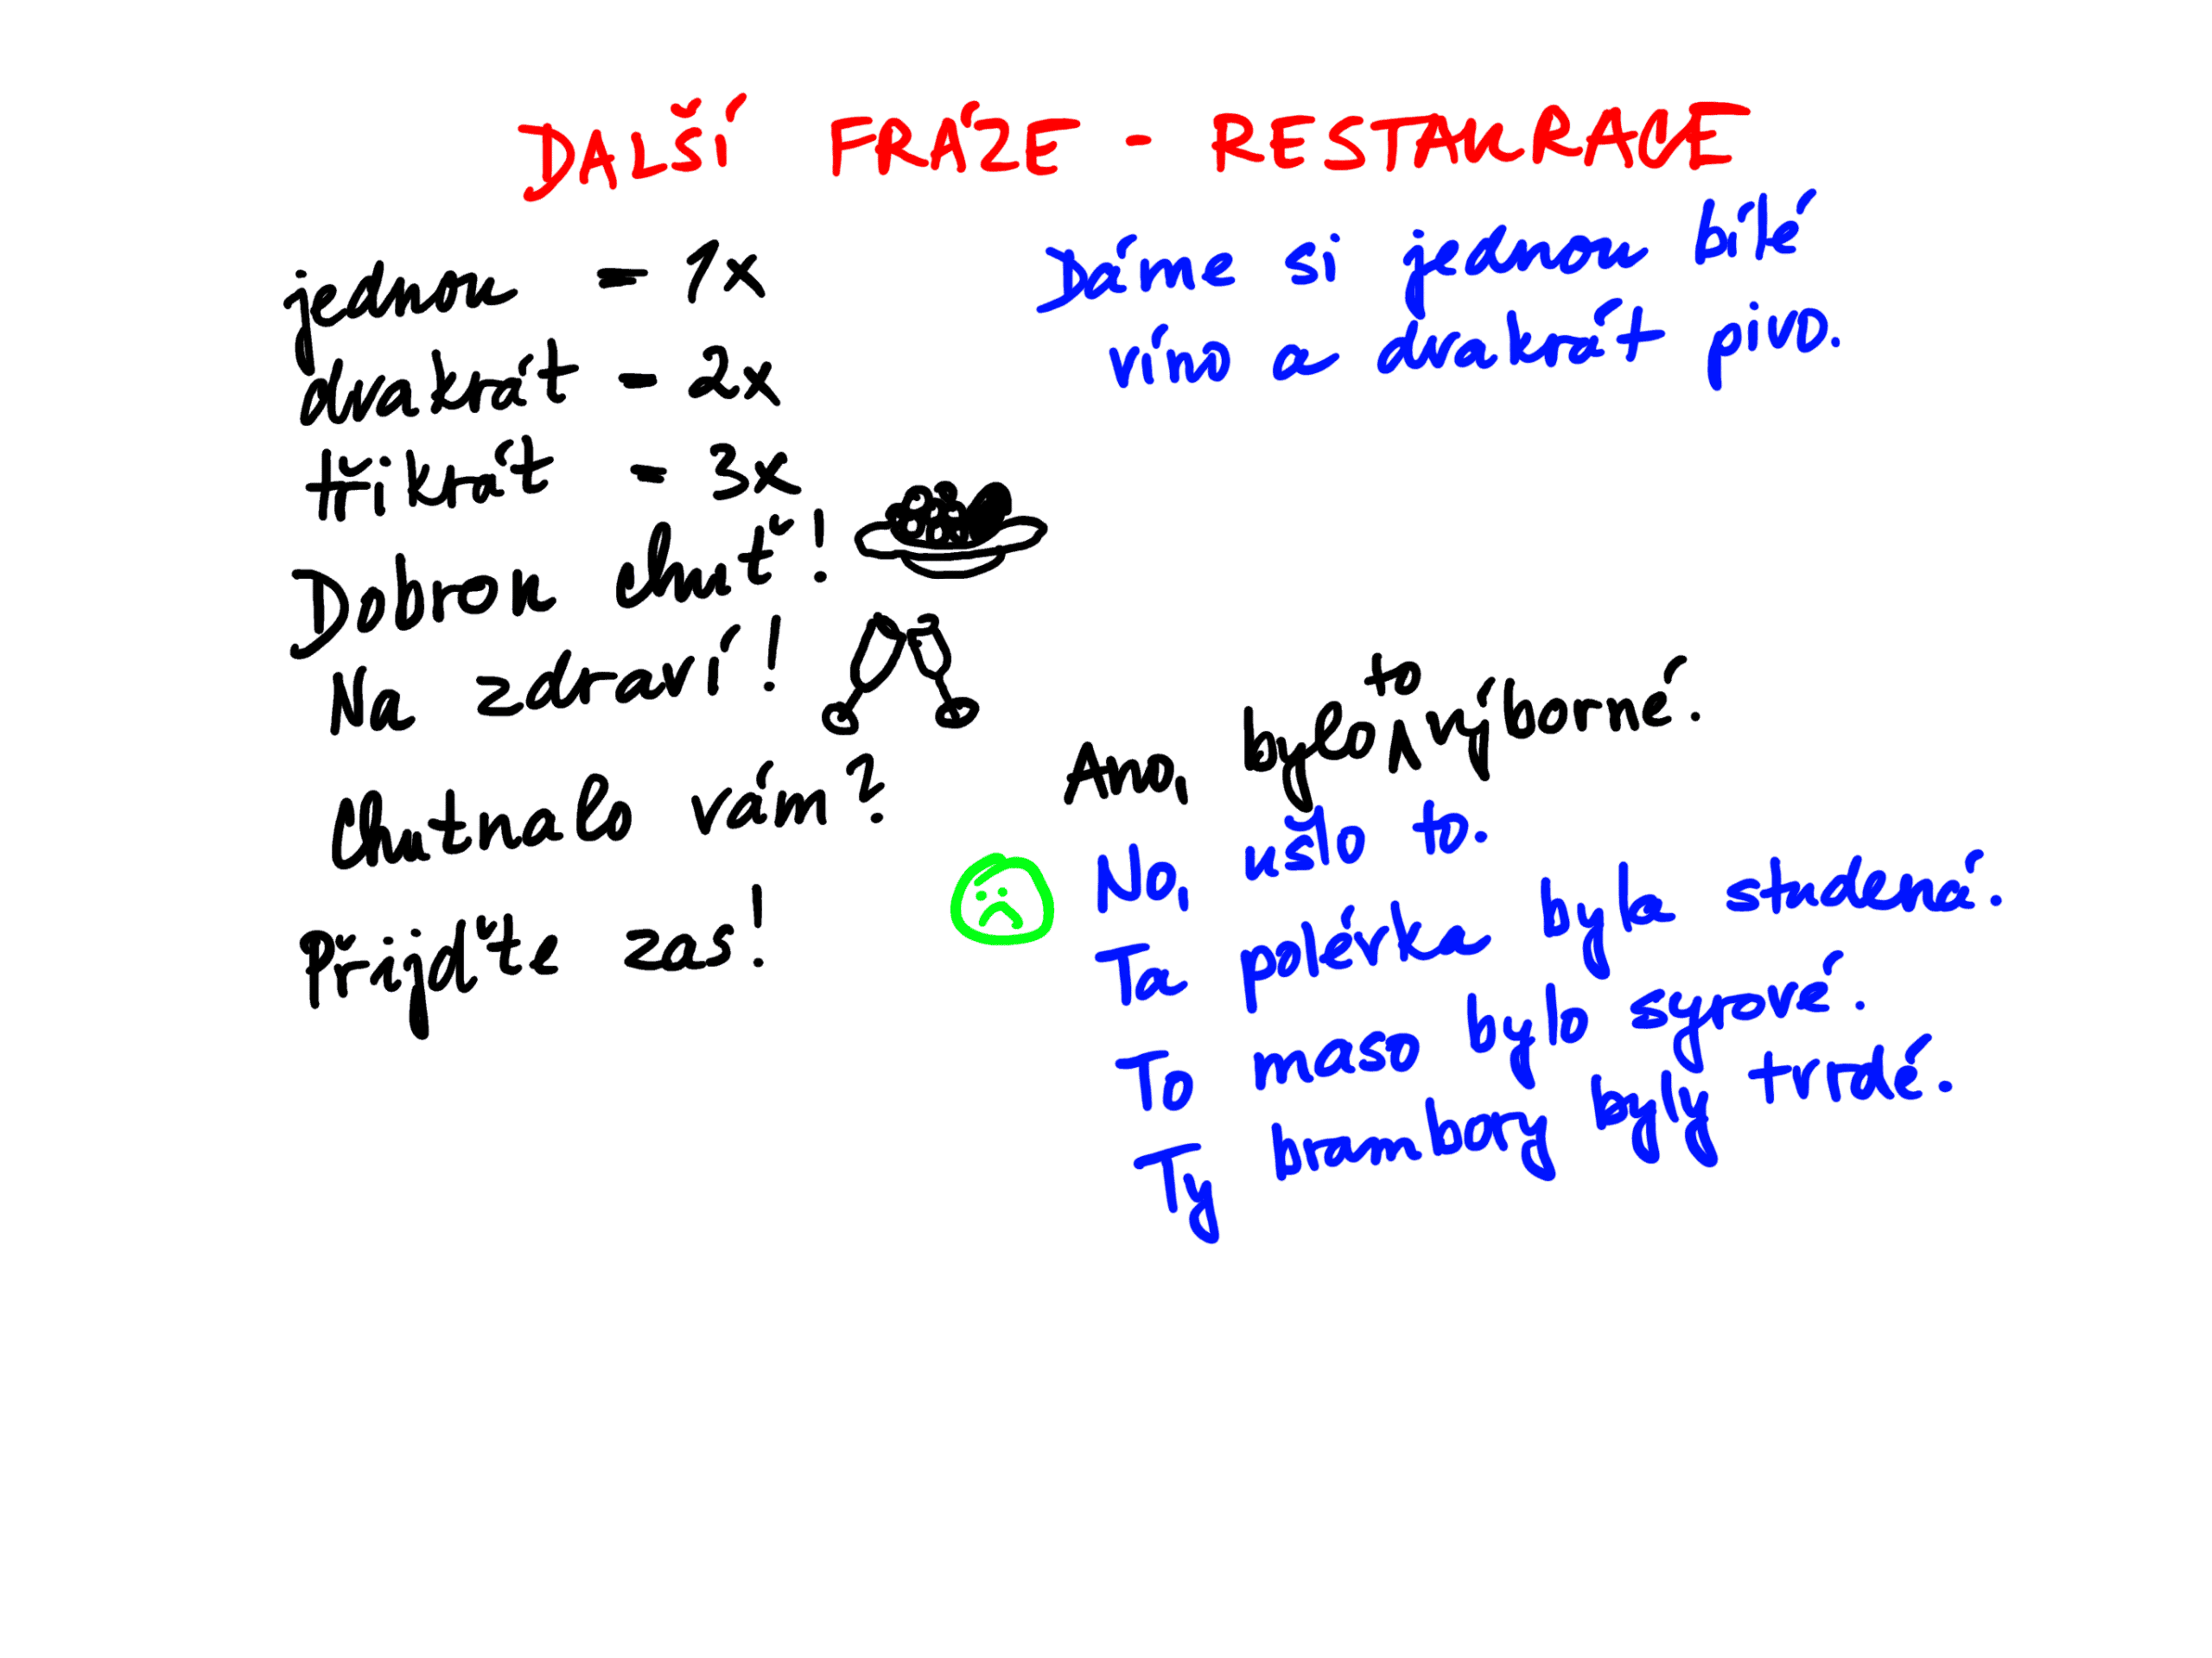 DALŠÍ FRÁZE - RESTAURACE
jednou = 1x
dvakrát - 2x
třikrát - 3x
Dáme si jednou bílé
víno a dvakrát pivo.
Dobrou chuť!
Na zdraví!
Chutnalo vám?
Ano, bylo to výborné.
No, ušlo to.
Ta polévka byla studená.
To maso bylo syrové.
Ty brambory byly tvrdé.
Přijďte zas!